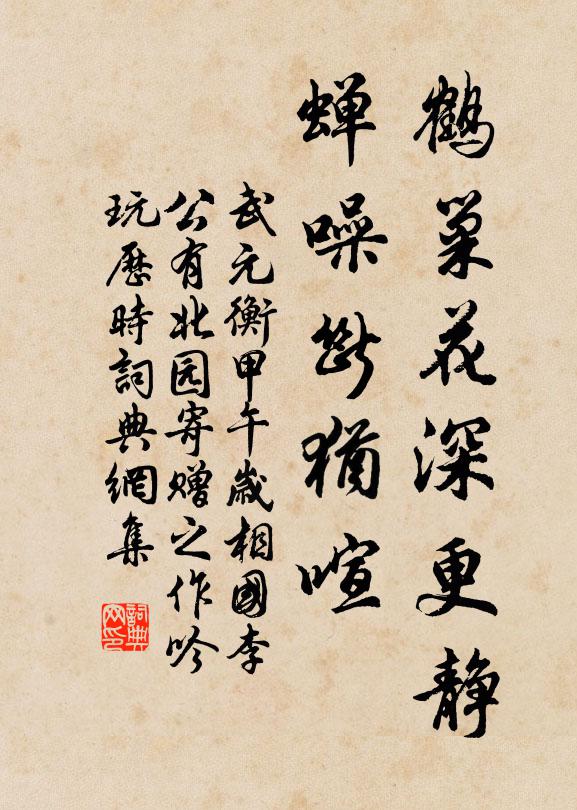 鹤巢花深更静
蝉噪断猶喧
武元衡甲午歲相國李
公有北园寄赠之作吟
玩歷時詞典網集
詞典
网印